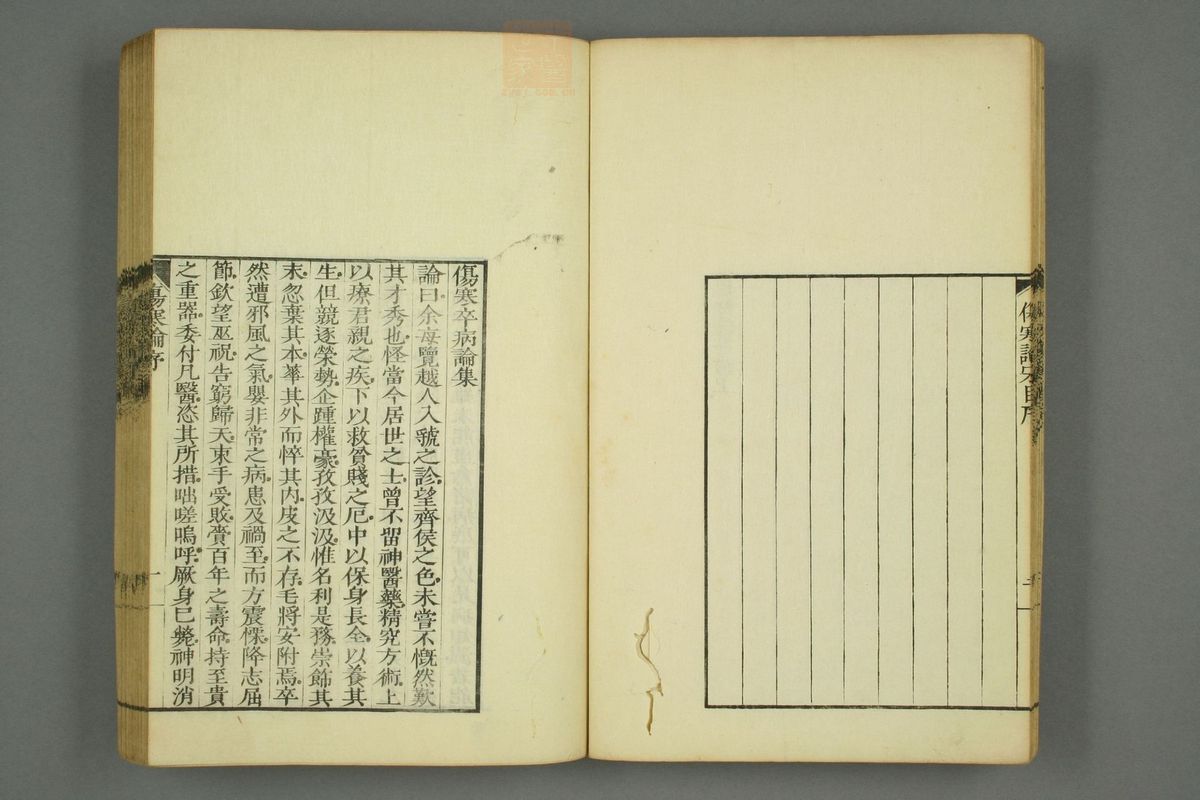 傷寒論宋目序
二
傷寒卒病論集
論曰余每覽越人入虢之診望齊侯之色未嘗不慨然歎
其才秀也怪當今居世之士曾不留神醫藥精究方術上
以療君親之疾下以救貧賤之厄中以保身長全以養其
生但競逐榮勢企踵權豪孜孜汲汲惟名利是務崇飾其
末忽棄其本華其外而悴其內皮之不存毛將安附焉卒
然遭邪風之氣嬰非常之病患及禍至而方震慄降志屈
節欽望巫祝告窮歸天束手受敗賫百年之壽命持至貴
之重器委付凡醫恣其所措咄嗟嗚呼厥身已斃神明消
傷寒論序
一